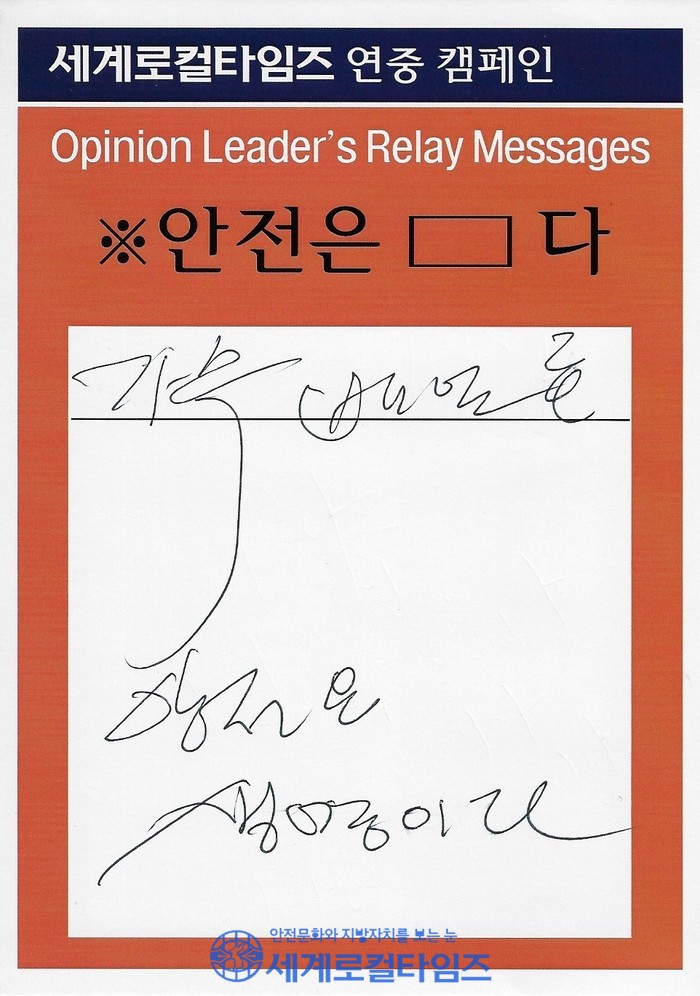 세계로컬타임즈 연중 캠페인
Opinion Leader's Relay Messages
※안전은 □ 다
가수 배일호
안전은
생명이다
안전문화와 지방자치를 보는 눈
세계로컬타임즈